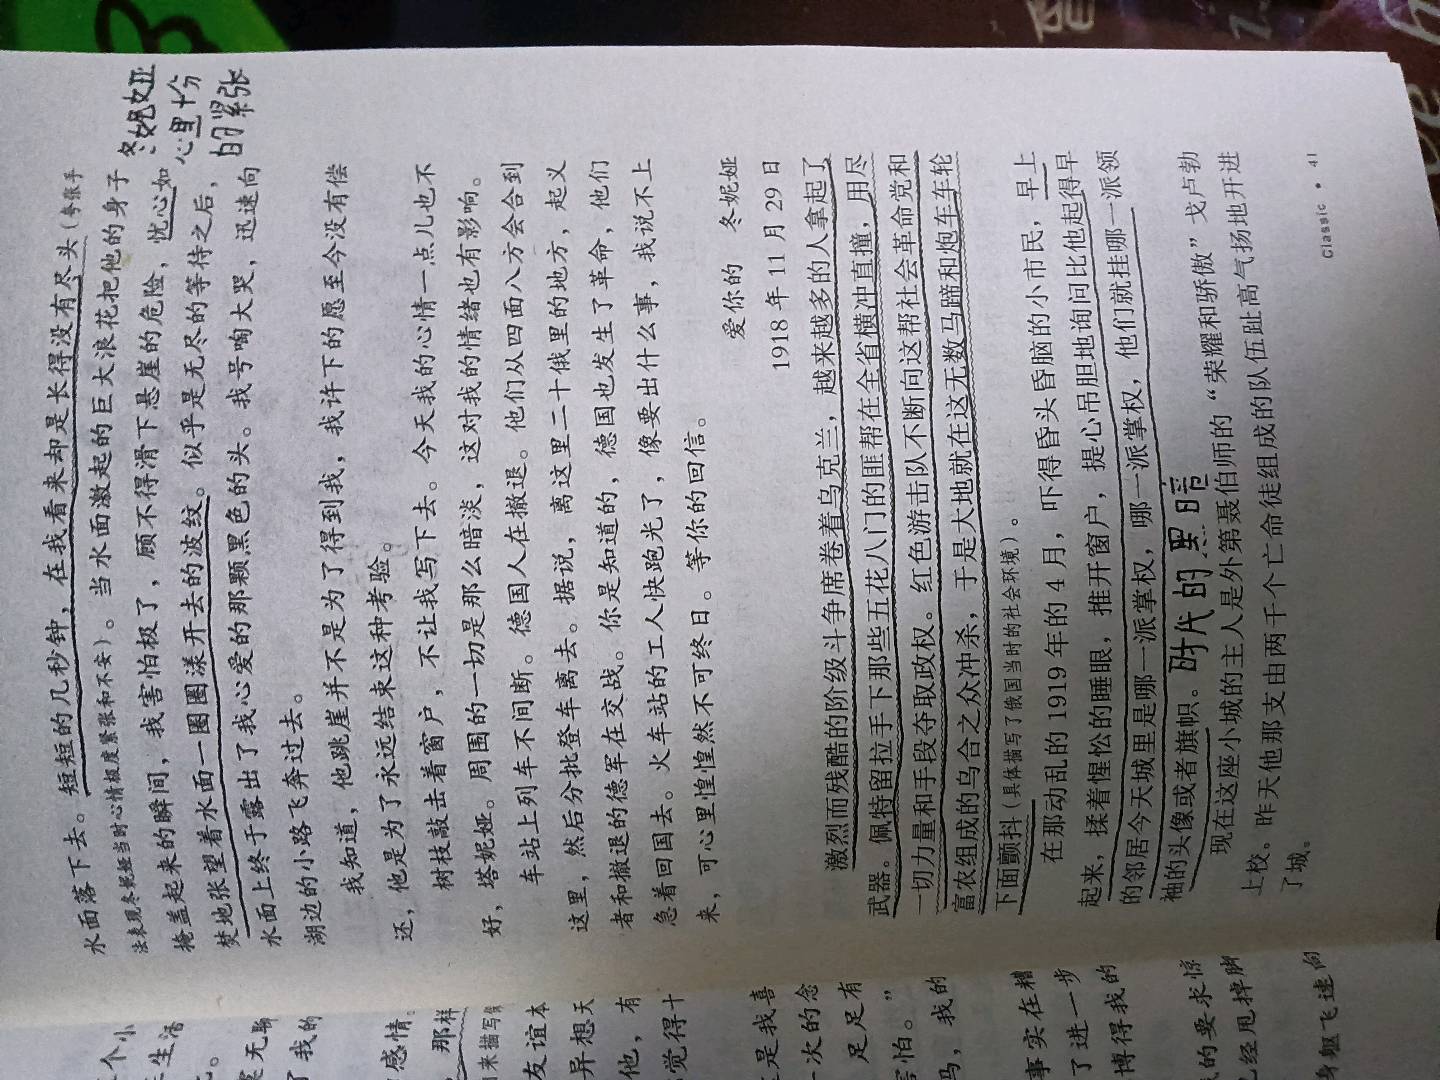 水面落下去。短短的几秒钟，在我看来却是长得没有尽头（夸张手
法表现冬妮娅当时心情极度紧张和不安）。当水面激起的巨大浪花把他的身子
掩盖起来的瞬间，我害怕极了，顾不得滑下悬崖的危险，忧心如
焚地张望着水面一圈圈漾开去的波纹。似乎是无尽的等待之后，
水面上终于露出了我心爱的那颗黑色的头。我号啕大哭，迅速向
湖边的小路飞奔过去。
冬妮娅
心里十分
的紧张
我知道，他跳崖并不是为了得到我，我许下的愿至今没有偿
还，他是为了永远结束这种考验。
树枝敲击着窗户，不让我写下去。今天我的心情一点儿也不
好，塔妮娅。周围的一切是那么暗淡，这对我的情绪也有影响。
车站上列车不间断。德国人在撤退。他们从四面八方会合到
这里，然后分批登车离去。据说，离这里二十俄里的地方，起义
者和撤退的德军在交战。你是知道的，德国也发生了革命，他们
急着回国去。火车站的工人快跑光了，像要出什么事，我说不上
来，可心里惶惶然不可终日。等你的回信。
爱你的 冬妮娅
1918年11月29日
激烈而残酷的阶级斗争席卷着乌克兰，越来越多的人拿起了
武器。佩特留拉手下那些五花八门的匪帮在全省横冲直撞，用尽
一切力量和手段夺取政权。红色游击队不断向这帮社会革命党和
富农组成的乌合之众冲杀，于是大地就在这无数马蹄和炮车车轮
下面颤抖（具体描写了俄国当时的社会环境）。
在那动乱的1919年的4月，吓得昏头昏脑的小市民，早上
起来，揉着惺忪的睡眼，推开窗户，提心吊胆地询问比他起得早
的邻居今天城里是哪一派掌权，哪一派掌权，他们就挂哪一派领
袖的头像或者旗帜。
时代的黑暗
现在这座小城的主人是外第聂伯师的“荣耀和骄傲”戈卢勃
上校。昨天他那支由两千个亡命徒组成的队伍趾高气扬地开进
了城。
Classic • 41
个小
生活
无聊
我的
感情。
那样
来描写
友谊本
异想天
他，有
觉得十
是我喜
一次的念
足足有
害怕。”
马，我的
事实在糟
了进一步
博得我的
的要求惊
已经甩掉脚
身躯飞速向